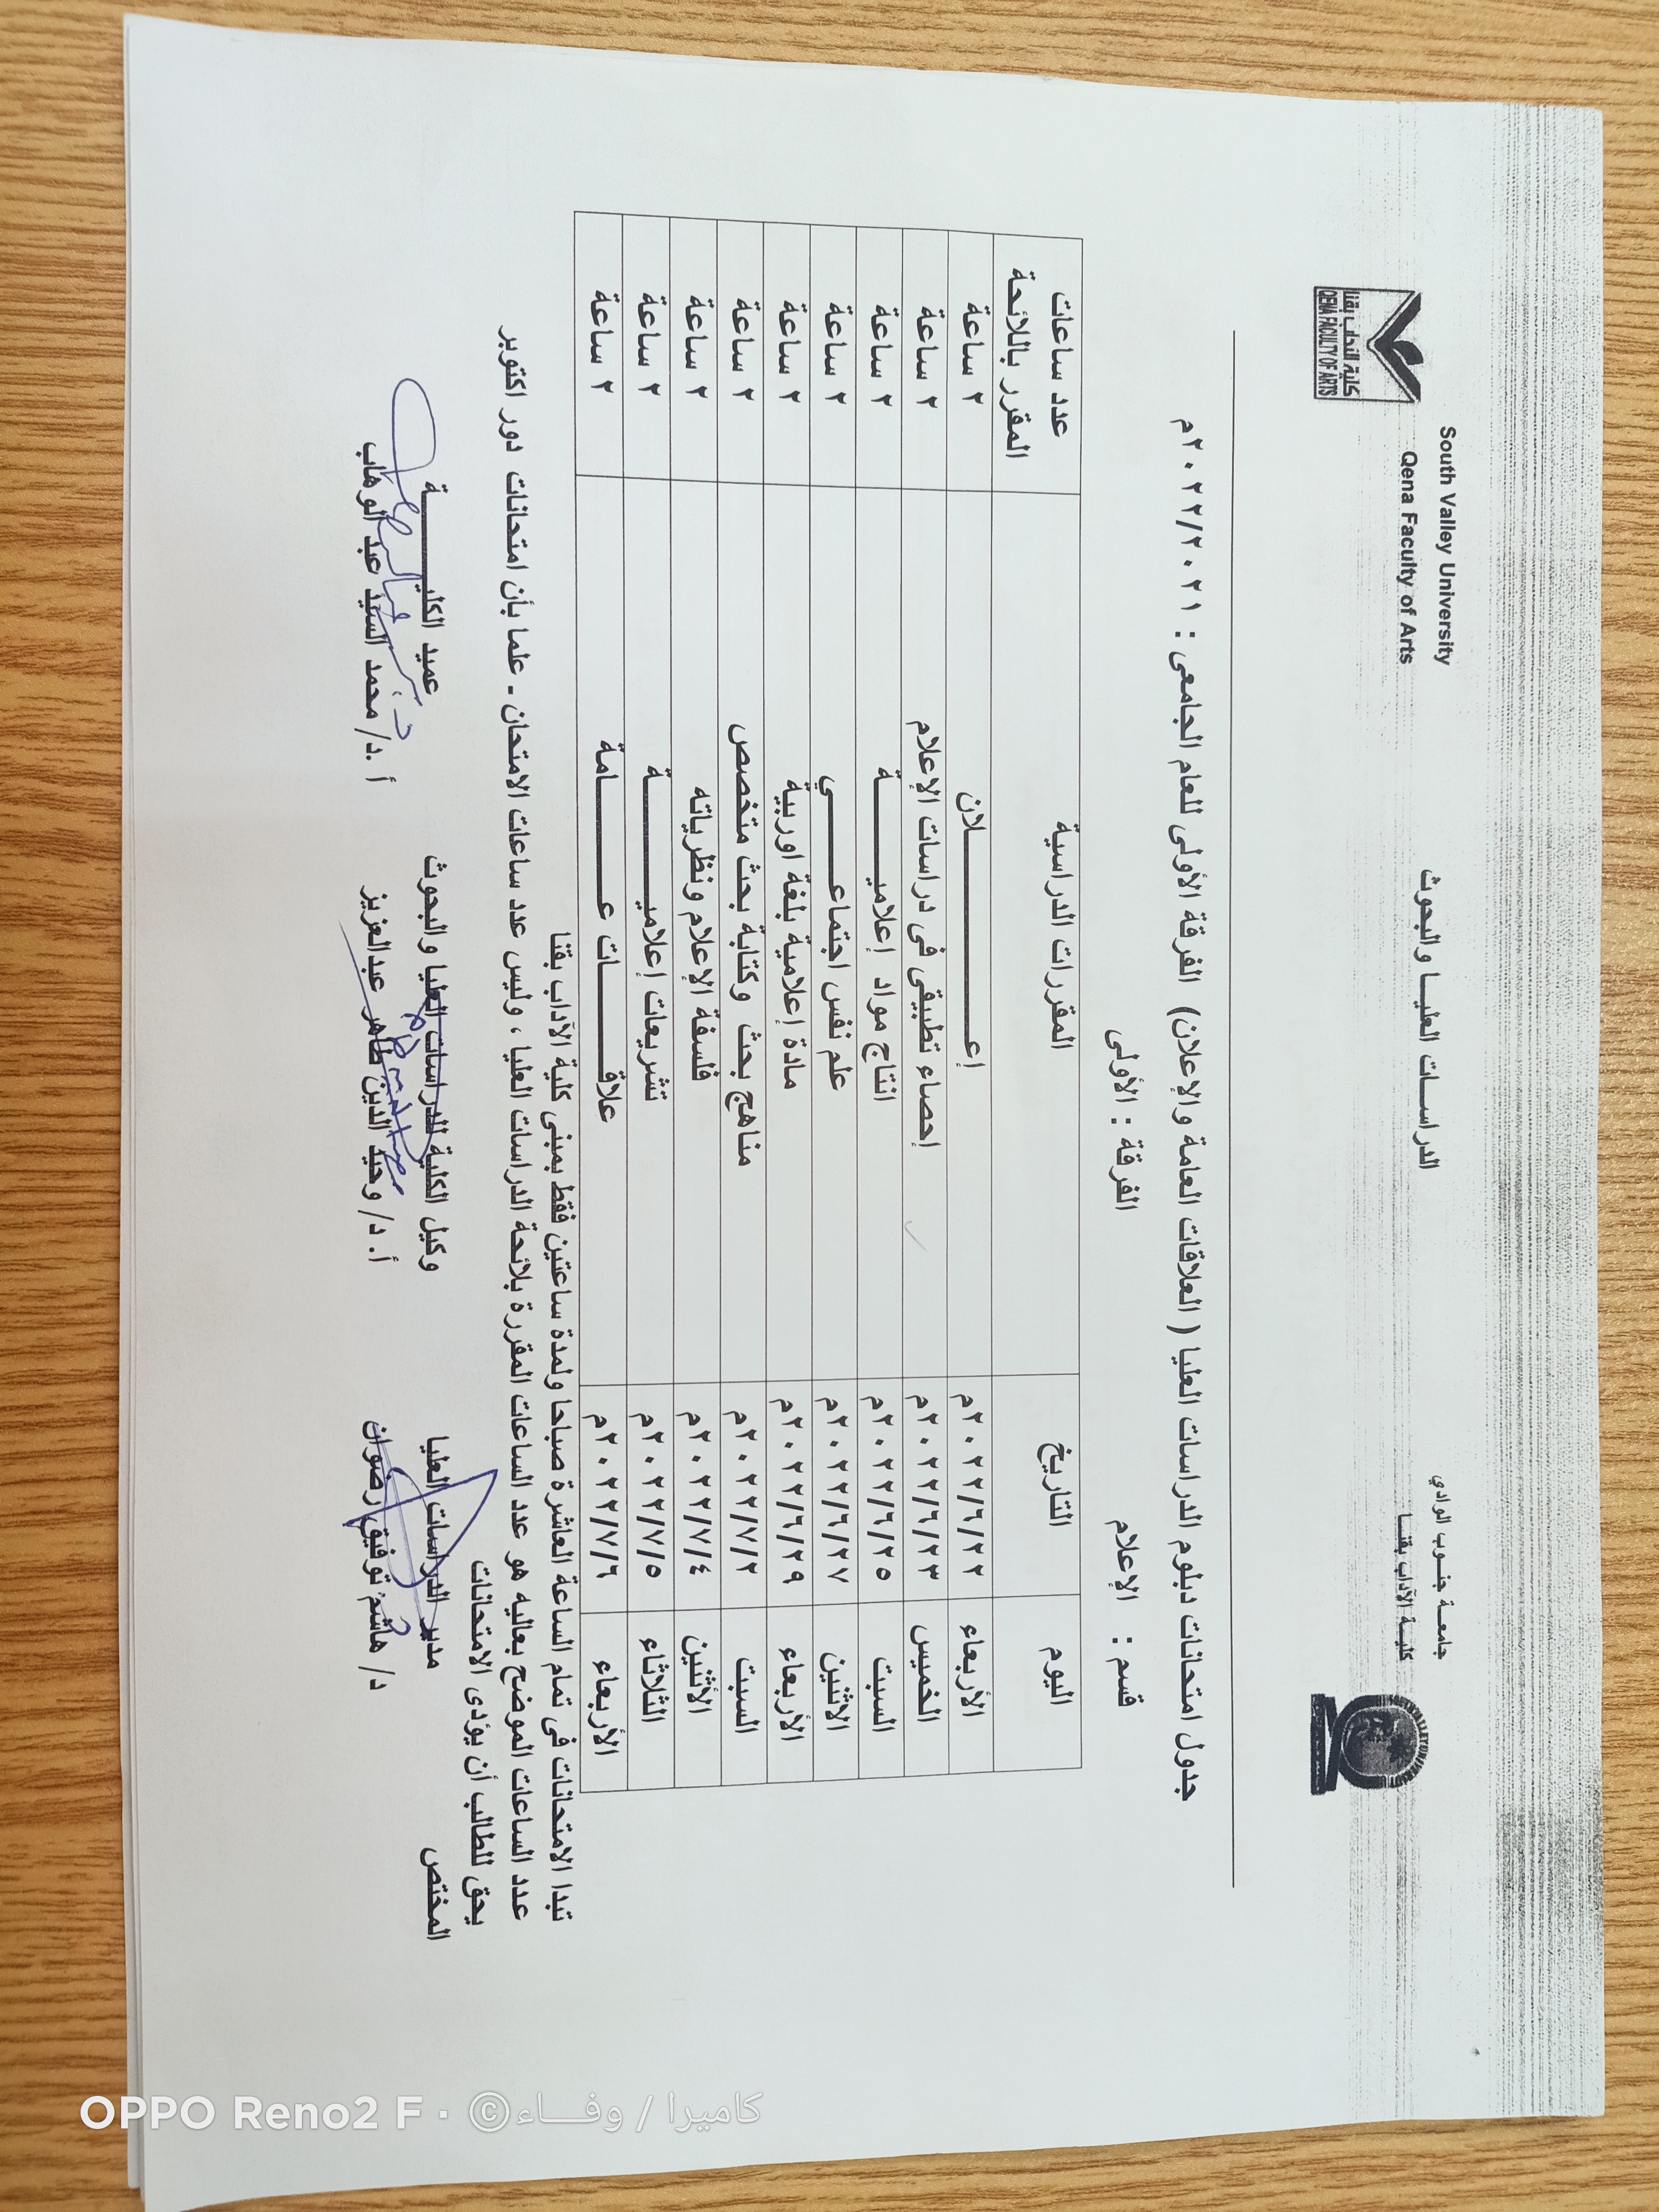 جامعــة جنــوب الوادي
كليــة الآداب بقنــا
الدراســات العليــا والبحوث
South Valley University
Qena Faculty of Arts
كلية الآداب بقنا
QENA FACULTY OF ARTS
جدول امتحانات دبلوم الدراسات العليا ( العلاقات العامة والإعلان) الفرقة الأولى للعام الجامعى : ٢٠٢٢/٢٠٢١م
قسم : الإعلام الفرقة : الأولى
اليوم التاريخ المقررات الدراسية عدد ساعات المقرر باللائحة
الأربعاء ٢٠٢٢/٦/٢٢م إعـــــــــلان ٢ ساعة
الخميس ٢٠٢٢/٦/٢٣م إحصاء تطبيقى فى دراسات الإعلام ٢ ساعة
السبت ٢٠٢٢/٦/٢٥م انتاج مواد إعلاميـــــة ٢ ساعة
الاثنين ٢٠٢٢/٦/٢٧م علم نفس اجتماعـــــي ٢ ساعة
الأربعاء ٢٠٢٢/٦/٢٩م مادة إعلامية بلغة اوربية ٢ ساعة
السبت ٢٠٢٢/٧/٢م مناهج بحث وكتابة بحث متخصص ٢ ساعة
الأثنين ٢٠٢٢/٧/٤م فلسفة الإعلام ونظرياته ٢ ساعة
الثلاثاء ٢٠٢٢/٧/٥م تشريعات إعلاميـــــة ٢ ساعة
الأربعاء ٢٠٢٢/٧/٦م علاقـــــات عـــــامة ٢ ساعة
تبدا الامتحانات فى تمام الساعة العاشرة صباحا ولمدة ساعتين فقط بمبنى كلية الآداب بقنا
عدد الساعات الموضح بعاليه هو عدد الساعات المقررة بلائحة الدراسات العليا ، وليس عدد ساعات الامتحان - علما بأن امتحانات دور اكتوبر
يحق للطالب أن يؤدى الامتحانات
المختص مدير الدراسات العليا وكيل الكلية للدراسات العليا والبحوث عميد الكليـــــة
د/ هاشم توفيق رضوان أ. د/ وحيد الدين طاهر عبدالعزيز أ .د/ محمد السيد عبد الوهاب
OPPO Reno2 F · ©كاميرا / وفــــاء